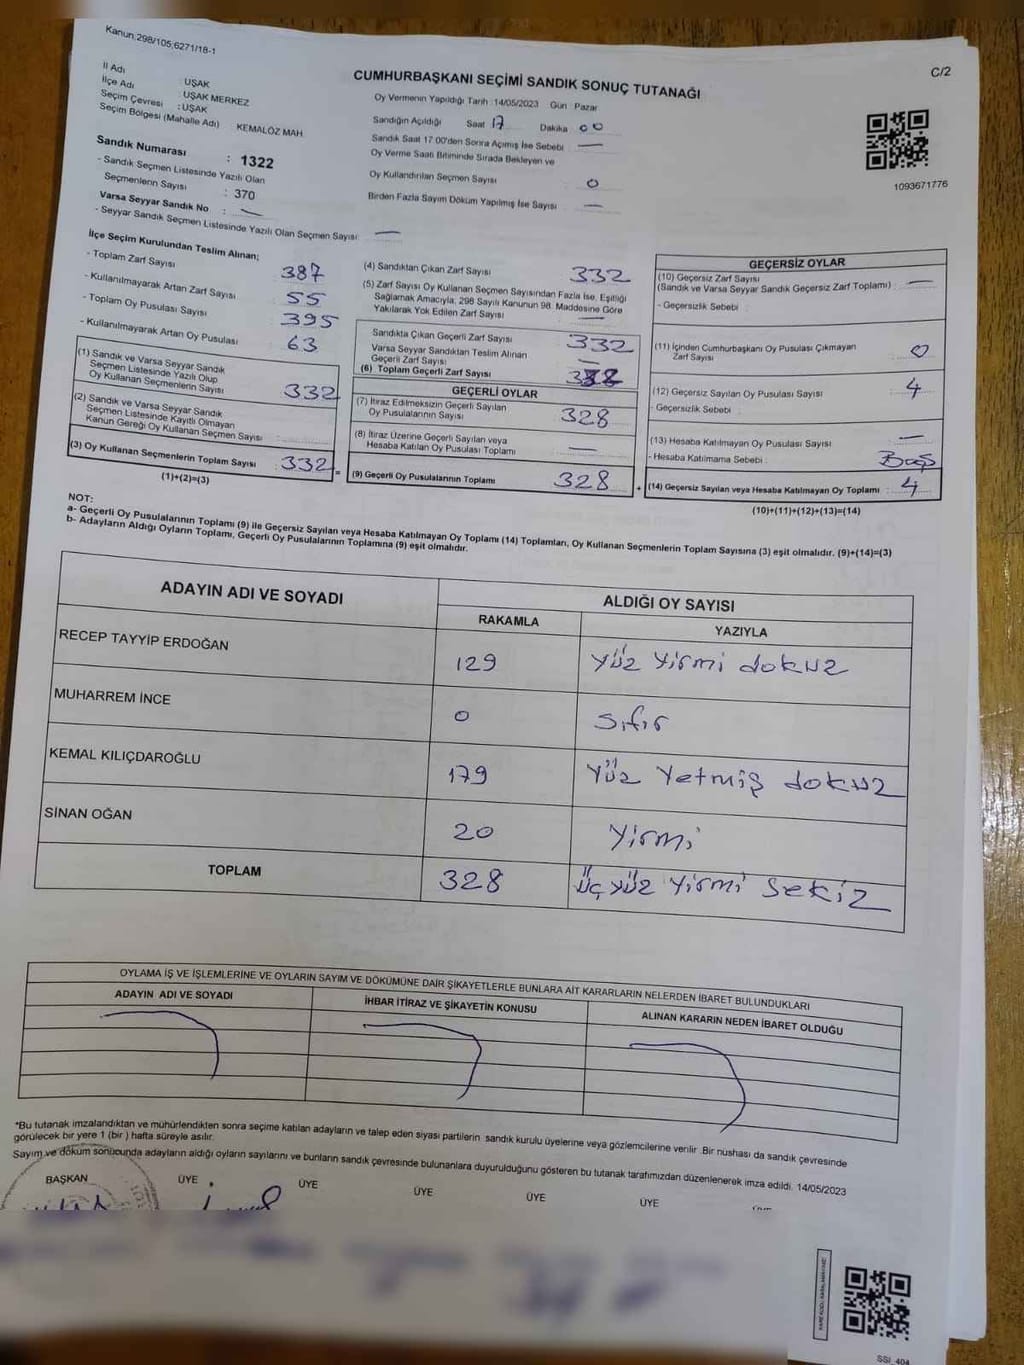 Kanun:298/105,6271/18-1
C/2
CUMHURBAŞKANI SEÇİMİ SANDIK SONUÇ TUTANAĞI
İl Adı UŞAK
İlçe Adı UŞAK MERKEZ
Seçim Çevresi : UŞAK
Seçim Bölgesi (Mahalle Adı) KEMALÖZ MAH.
Sandık Numarası : 1322
- Sandık Seçmen Listesinde Yazılı Olan
Seçmenlerin Sayısı : 370
Varsa Seyyar Sandık No : —
- Seyyar Sandık Seçmen Listesinde Yazılı Olan Seçmen Sayısı —
Oy Vermenin Yapıldığı Tarih :14/05/2023 Gün Pazar
Sandığın Açıldığı Saat 17 Dakika 00
Sandık Saat 17:00'den Sonra Açılmış İse Sebebi —
Oy Verme Saati Bitiminde Sırada Bekleyen ve
Oy Kullandırılan Seçmen Sayısı : 0
Birden Fazla Sayım Döküm Yapılmış İse Sayısı —
1093671776
İlçe Seçim Kurulundan Teslim Alınan;
- Toplam Zarf Sayısı 387
- Kullanılmayarak Artan Zarf Sayısı 55
- Toplam Oy Pusulası Sayısı 395
- Kullanılmayarak Artan Oy Pusulası 63
(1) Sandık ve Varsa Seyyar Sandık
Seçmen Listesinde Yazılı Olup
Oy Kullanan Seçmenlerin Sayısı : 332
(2) Sandık ve Varsa Seyyar Sandık
Seçmen Listesinde Kayıtlı Olmayan
Kanun Gereği Oy Kullanan Seçmen Sayısı :
(3) Oy Kullanan Seçmenlerin Toplam Sayısı : 332 =
(1)+(2)=(3)
(4) Sandıktan Çıkan Zarf Sayısı 332
(5) Zarf Sayısı Oy Kullanan Seçmen Sayısından Fazla İse, Eşitliği
Sağlamak Amacıyla; 298 Sayılı Kanunun 98. Maddesine Göre
Yakılarak Yok Edilen Zarf Sayısı : —
Sandıkta Çıkan Geçerli Zarf Sayısı 332
Varsa Seyyar Sandıktan Teslim Alınan
Geçerli Zarf Sayısı —
(6) Toplam Geçerli Zarf Sayısı
GEÇERLİ OYLAR
(7) İtiraz Edilmeksizin Geçerli Sayılan
Oy Pusulalarının Sayısı : 328
(8) İtiraz Üzerine Geçerli Sayılan veya
Hesaba Katılan Oy Pusulası Toplamı : —
(9) Geçerli Oy Pusulalarının Toplamı 328 +
GEÇERSİZ OYLAR
(10) Geçersiz Zarf Sayısı
(Sandık ve Varsa Seyyar Sandık Geçersiz Zarf Toplamı) : —
- Geçersizlik Sebebi :
(11) İçinden Cumhurbaşkanı Oy Pusulası Çıkmayan
Zarf Sayısı : 0
(12) Geçersiz Sayılan Oy Pusulası Sayısı : 4
- Geçersizlik Sebebi :
(13) Hesaba Katılmayan Oy Pusulası Sayısı —
- Hesaba Katılmama Sebebi : Boş
(14) Geçersiz Sayılan veya Hesaba Katılmayan Oy Toplamı : 4
(10)+(11)+(12)+(13)=(14)
NOT:
a- Geçerli Oy Pusulalarının Toplamı (9) ile Geçersiz Sayılan veya Hesaba Katılmayan Oy Toplamı (14) Toplamları, Oy Kullanan Seçmenlerin Toplam Sayısına (3) eşit olmalıdır. (9)+(14)=(3)
b- Adayların Aldığı Oyların Toplamı, Geçerli Oy Pusulalarının Toplamına (9) eşit olmalıdır.
ADAYIN ADI VE SOYADI ALDIĞI OY SAYISI
RAKAMLA YAZIYLA
RECEP TAYYİP ERDOĞAN 129 yüz yirmi dokuz
MUHARREM İNCE 0 sıfır
KEMAL KILIÇDAROĞLU 179 yüz yetmiş dokuz
SİNAN OĞAN 20 yirmi
TOPLAM 328 üç yüz yirmi sekiz
OYLAMA İŞ VE İŞLEMLERİNE VE OYLARIN SAYIM VE DÖKÜMÜNE DAİR ŞİKAYETLERLE BUNLARA AİT KARARLARIN NELERDEN İBARET BULUNDUKLARI
ADAYIN ADI VE SOYADI İHBAR İTİRAZ VE ŞİKAYETİN KONUSU ALINAN KARARIN NEDEN İBARET OLDUĞU
*Bu tutanak imzalandıktan ve mühürlendikten sonra seçime katılan adayların ve talep eden siyasi partilerin sandık kurulu üyelerine veya gözlemcilerine verilir. Bir nüshası da sandık çevresinde
görülecek bir yere 1 (bir) hafta süreyle asılır.
Sayım ve döküm sonucunda adayların aldığı oyların sayılarını ve bunların sandık çevresinde bulunanlara duyurulduğunu gösteren bu tutanak tarafımızdan düzenlenerek imza edildi. 14/05/2023
BAŞKAN ÜYE ÜYE ÜYE ÜYE ÜYE
SSI 404